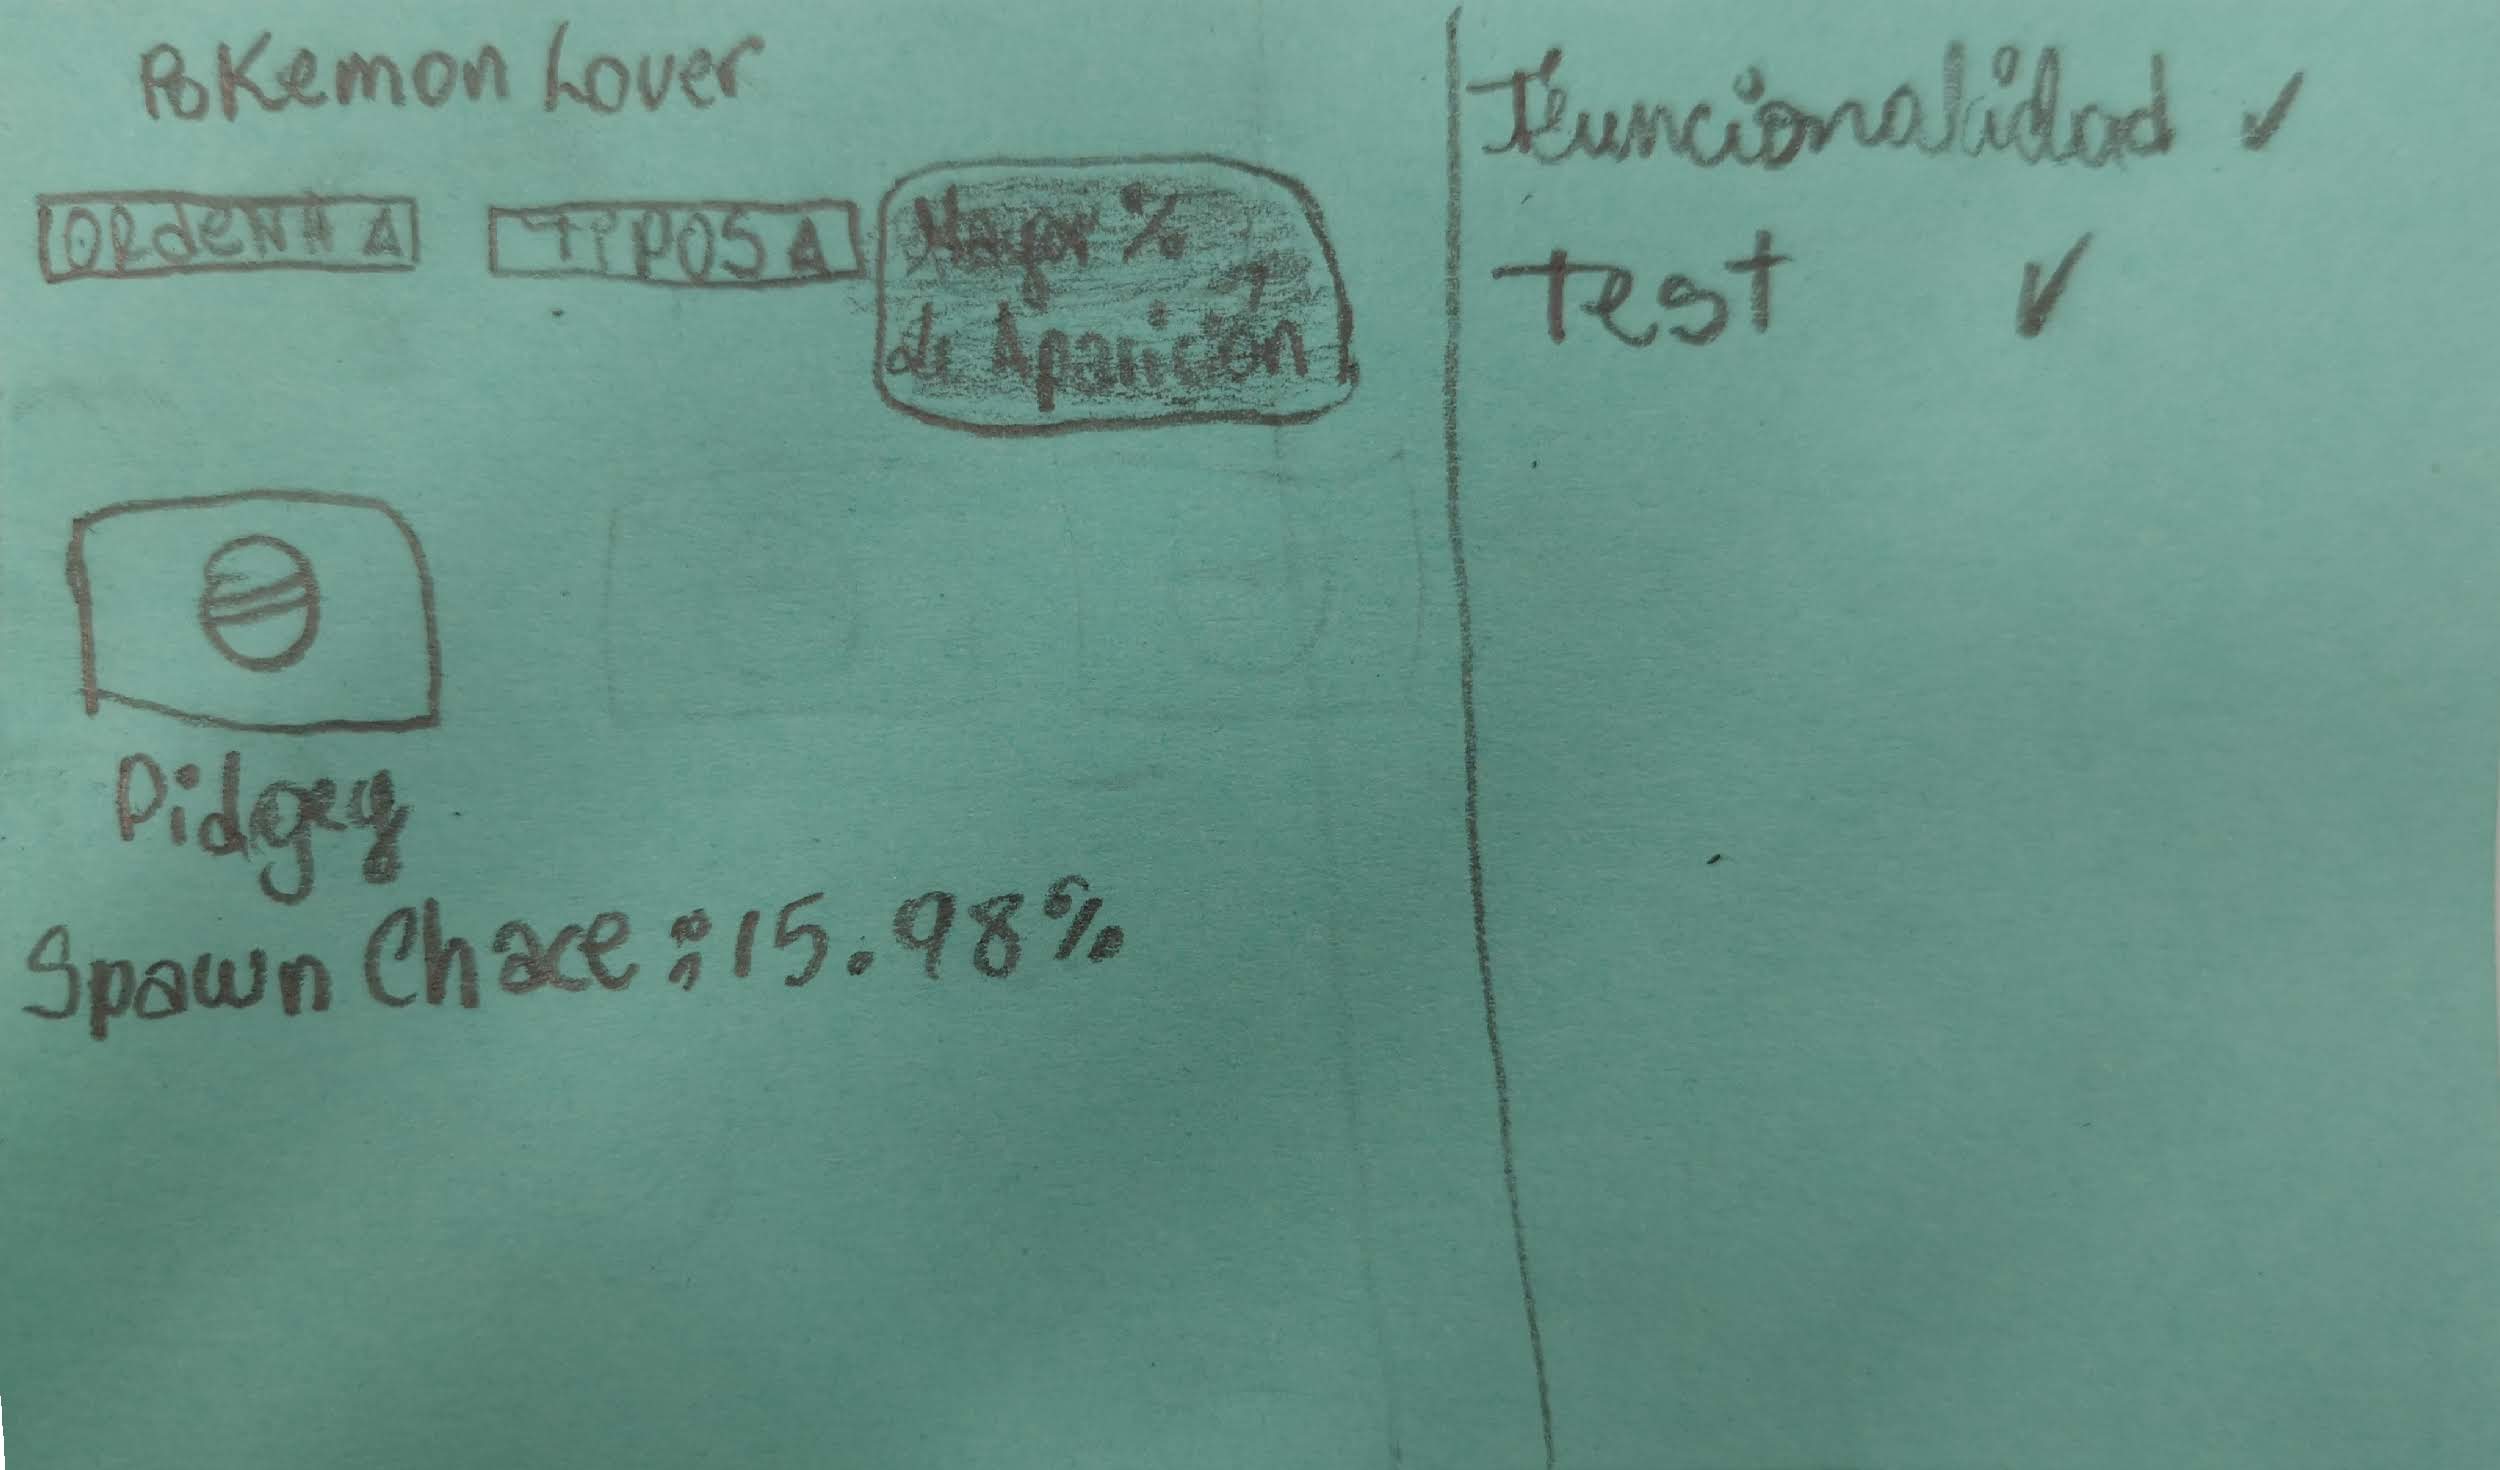 Pokemon Lover
ORdeNA
TIPOS
Mayor %
de Aparición
Pidgey
Spawn Chace : 15.98%
Funcionalidad ✓
Test ✓